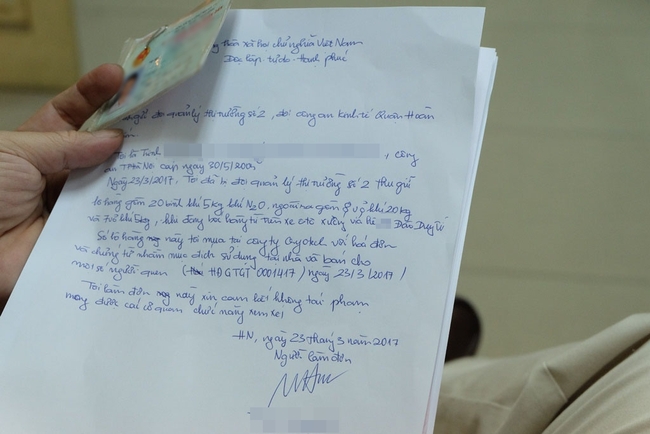 xã hội chủ nghĩa Việt Nam
Độc lập - tự do - Hạnh phúc
gửi đội quản lý thị trường số 2, đội công an kinh tế Quận Hoàn
Tôi là Trịnh , công
an TP Hà Nội cấp ngày 30/5/200
Ngày 23/3/2017, Tôi đã bị đội quản lý thị trường số 2 thu giữ
lô hàng gồm 20 bình khí 5kg khí N2O, ngoài ra gồm 8 vỏ khí 20kg
và 7 vỏ khí 5kg, khi đang bốc hàng từ trên xe ôtô xuống Đào Duy Từ
Số lô hàng này tôi mua tại công ty với hóa đơn
và chứng từ nhằm mục đích sử dụng tại nhà và bán cho
một số người quen HĐGTGT 0001417) ngày 23/3/2017/
Tôi làm đơn này xin cam kết không tái phạm
mong được các cơ quan chức năng xem xét
HN, ngày 23 tháng 3 năm 2017
Người làm đơn